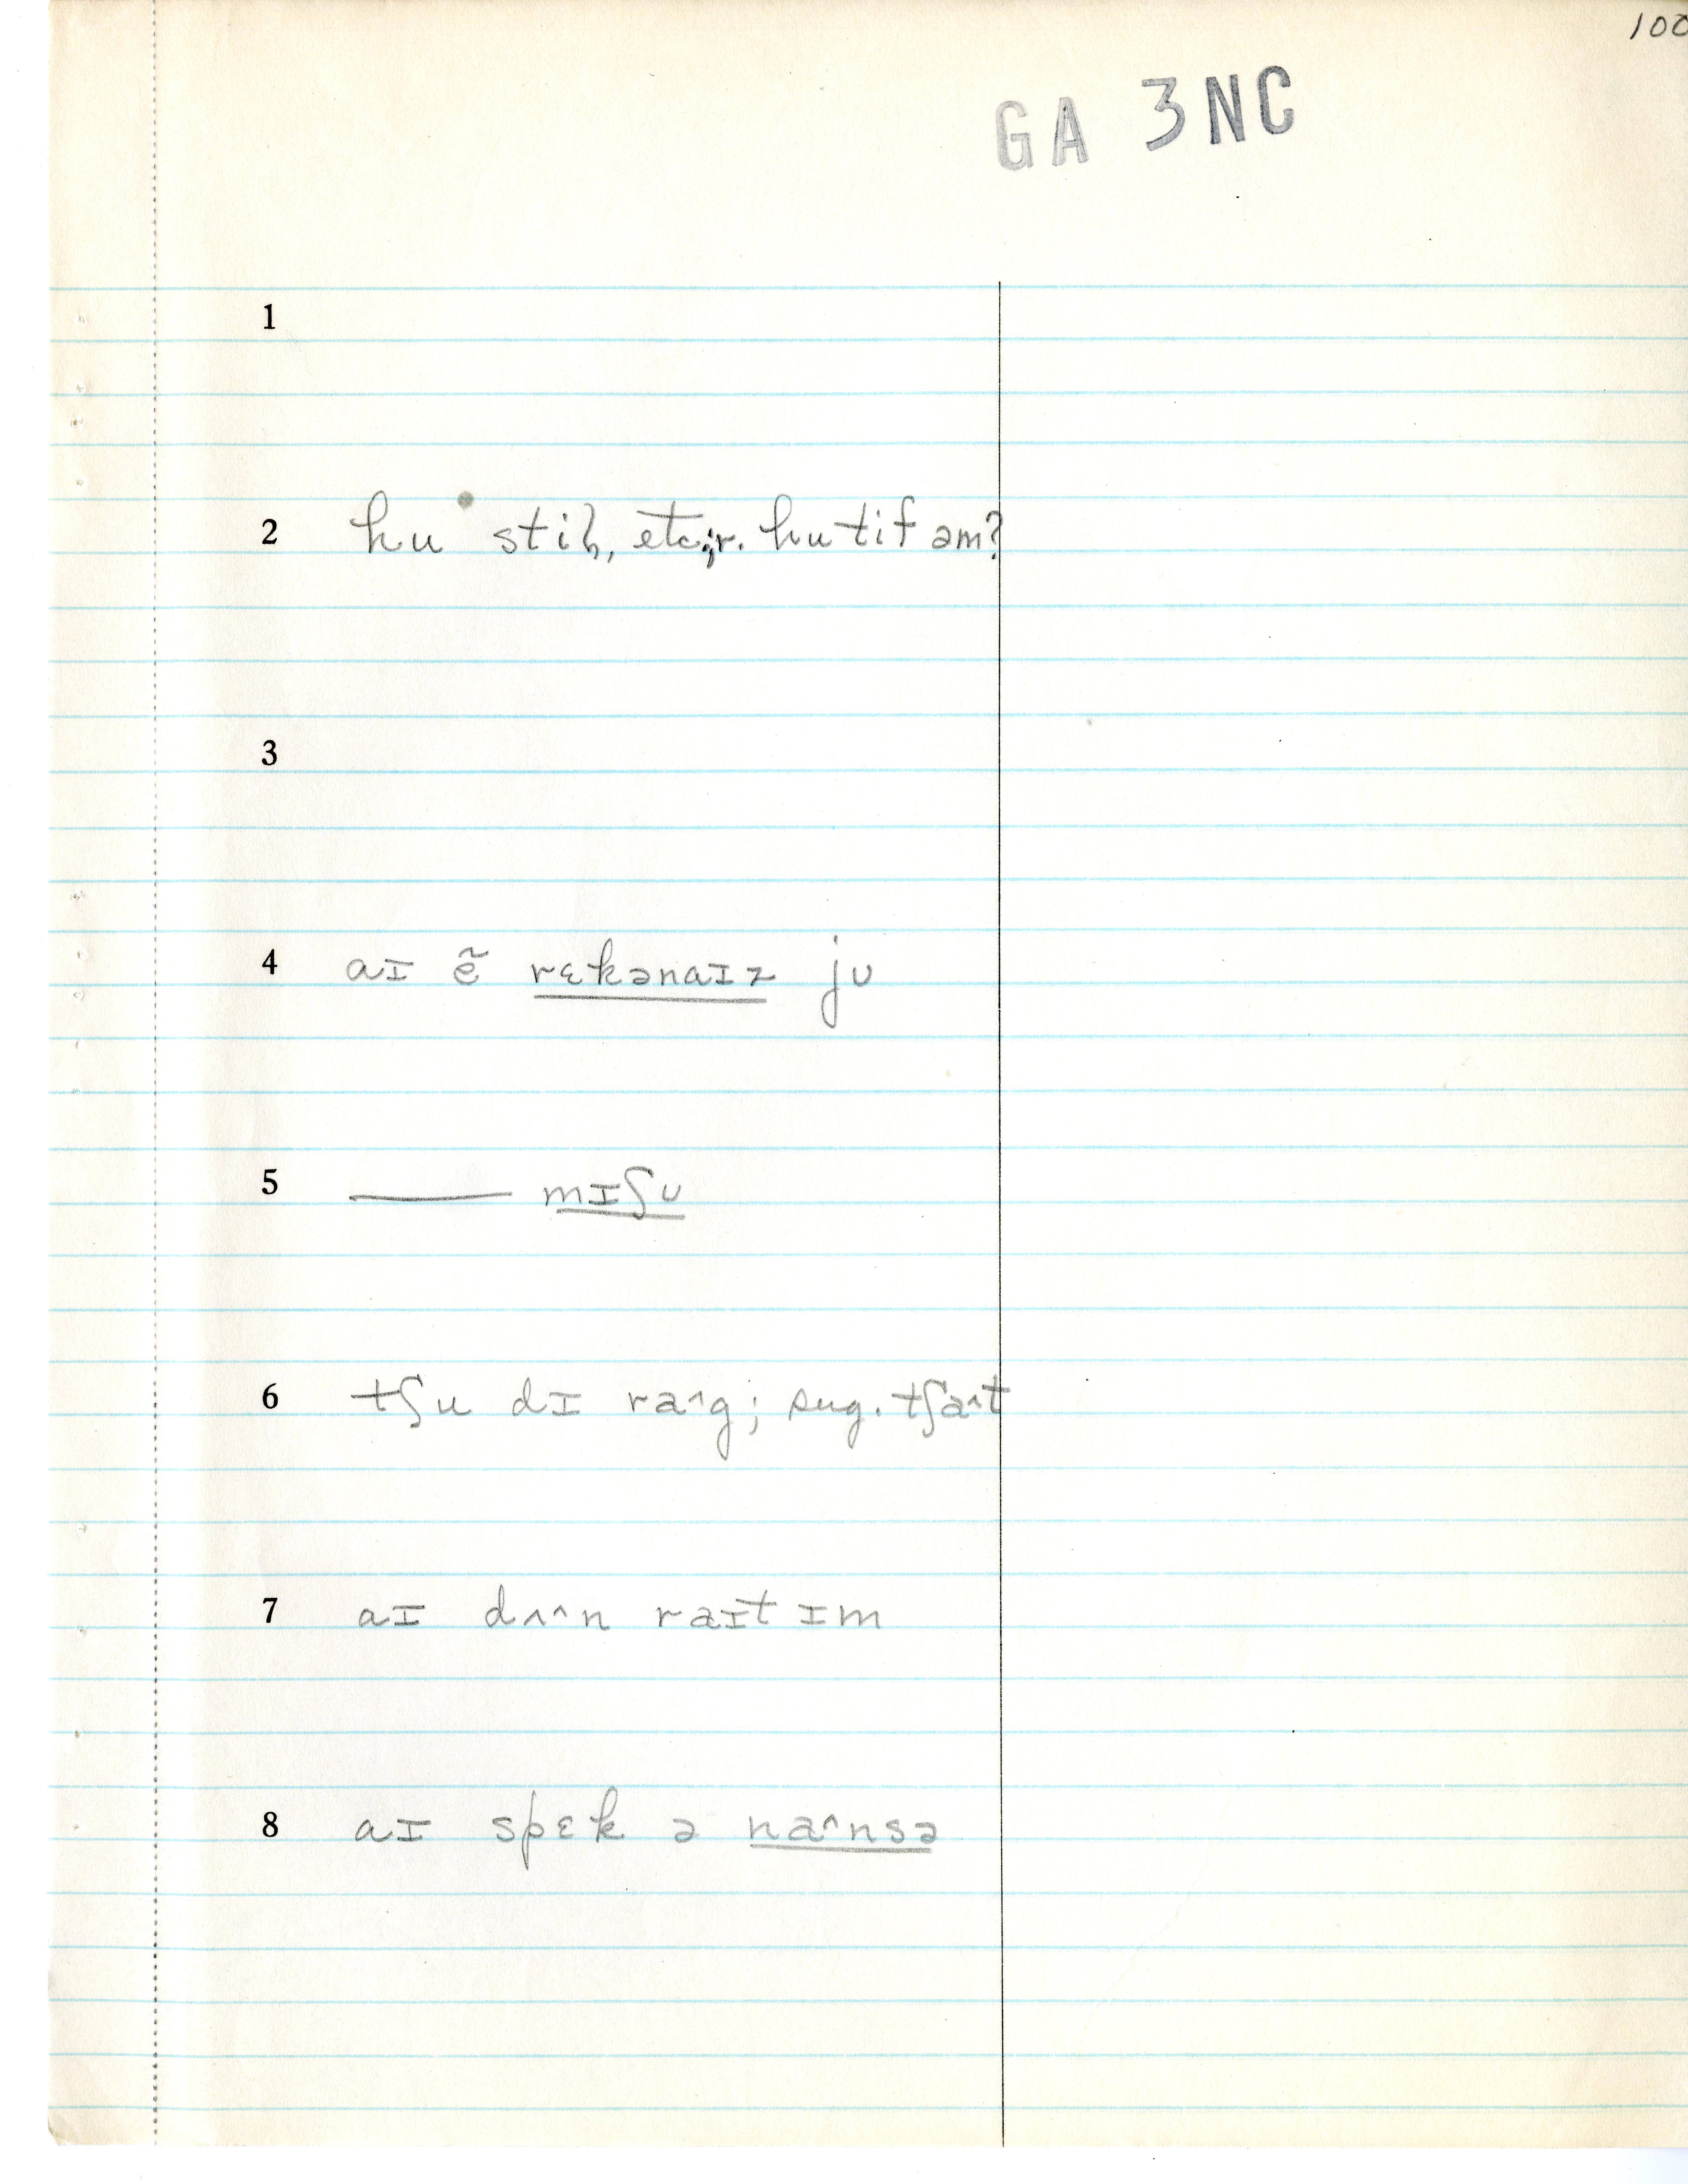 100
GA 3NC
1
2 hu stil, etc.; r. hu tif əm?
3
4 aɪ ẽ rɛkənaɪz jʊ
5 —— mɪʃʊ
6 tʃu dɪ ra^g; sug. tʃa^t
7 aɪ dʌ^n raɪt ɪm
8 aɪ spɛk ə na^nsə